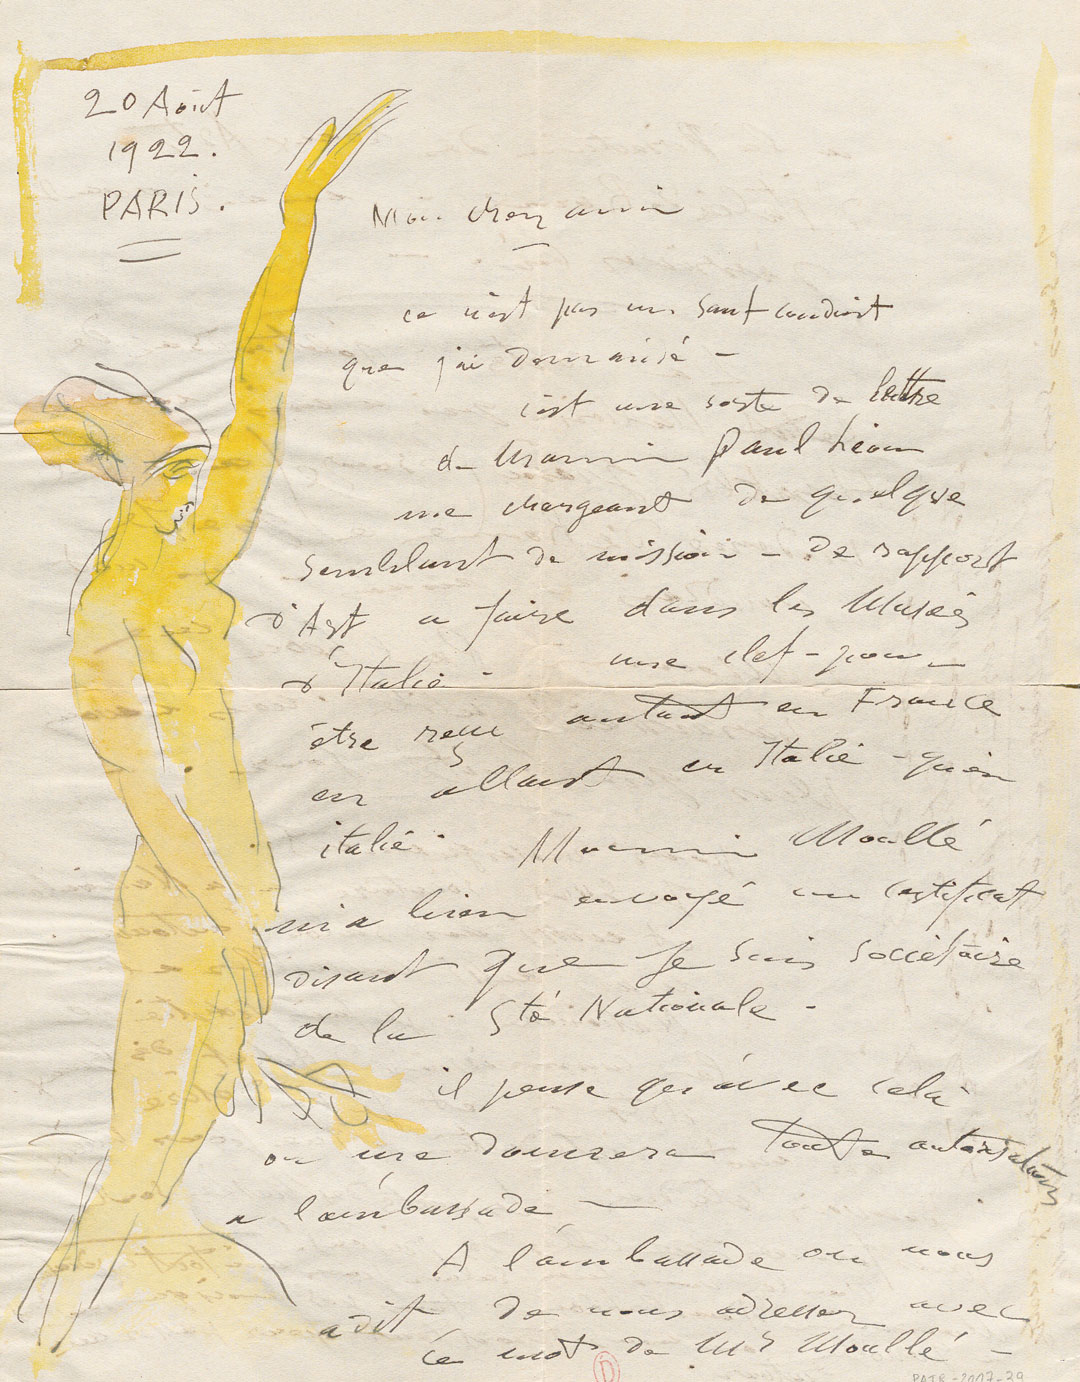 20 Août
1922.
PARIS.
Mon cher ami
ce n'est pas un sauf conduit
que j'ai demandé -
c'est une sorte de lettre
de Paul Léon
me chargeant de quelque
semblant de mission - de rapport
d'Art a faire dans les Musées
d'Italie - une clef - pour
être reçu autant en France
en allant en Italie - qu'en
italie Moullé
m'a bien envoyé un certificat
disant que je suis sociétaire
de la Sté Nationale -
il pense qu'avec celà
on me donnera toute autorisations
a l'ambassade -
A l'ambassade on nous
a dit de nous adresser avec
ce mot de Mr Moullé -